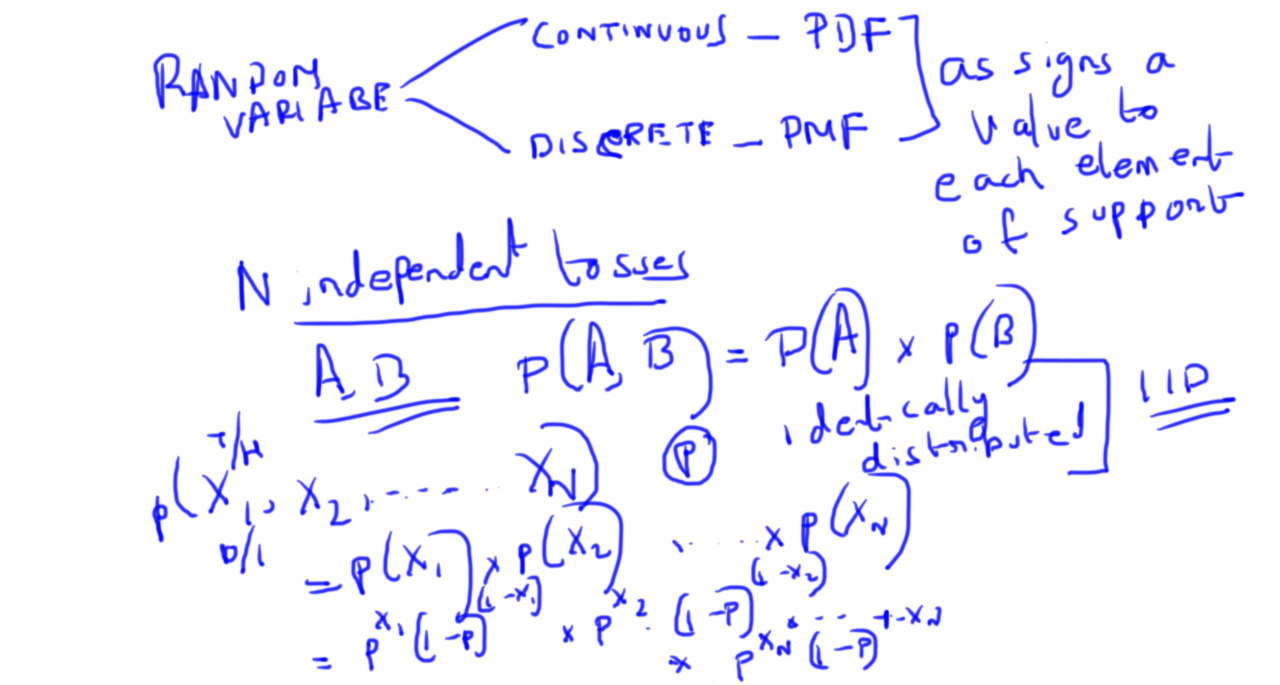 RANDOM VARIABE
CONTINUOUS - PDF
DISCRETE - PMF
assigns a
value to
each element
of support
N independent tosses
A, B P(A, B) = P(A) x P(B)
identically
distributed
IID
T/H
P(X₁, X₂, ...... X_N) P
0/1
= P(X₁) x P(X₂) ..... x P(X_N)
= P^X₁ (1-P)^(1-X₁) x P^X₂ . (1-P)^(1-X₂) ....
x P^X_N (1-P)^1-X_N